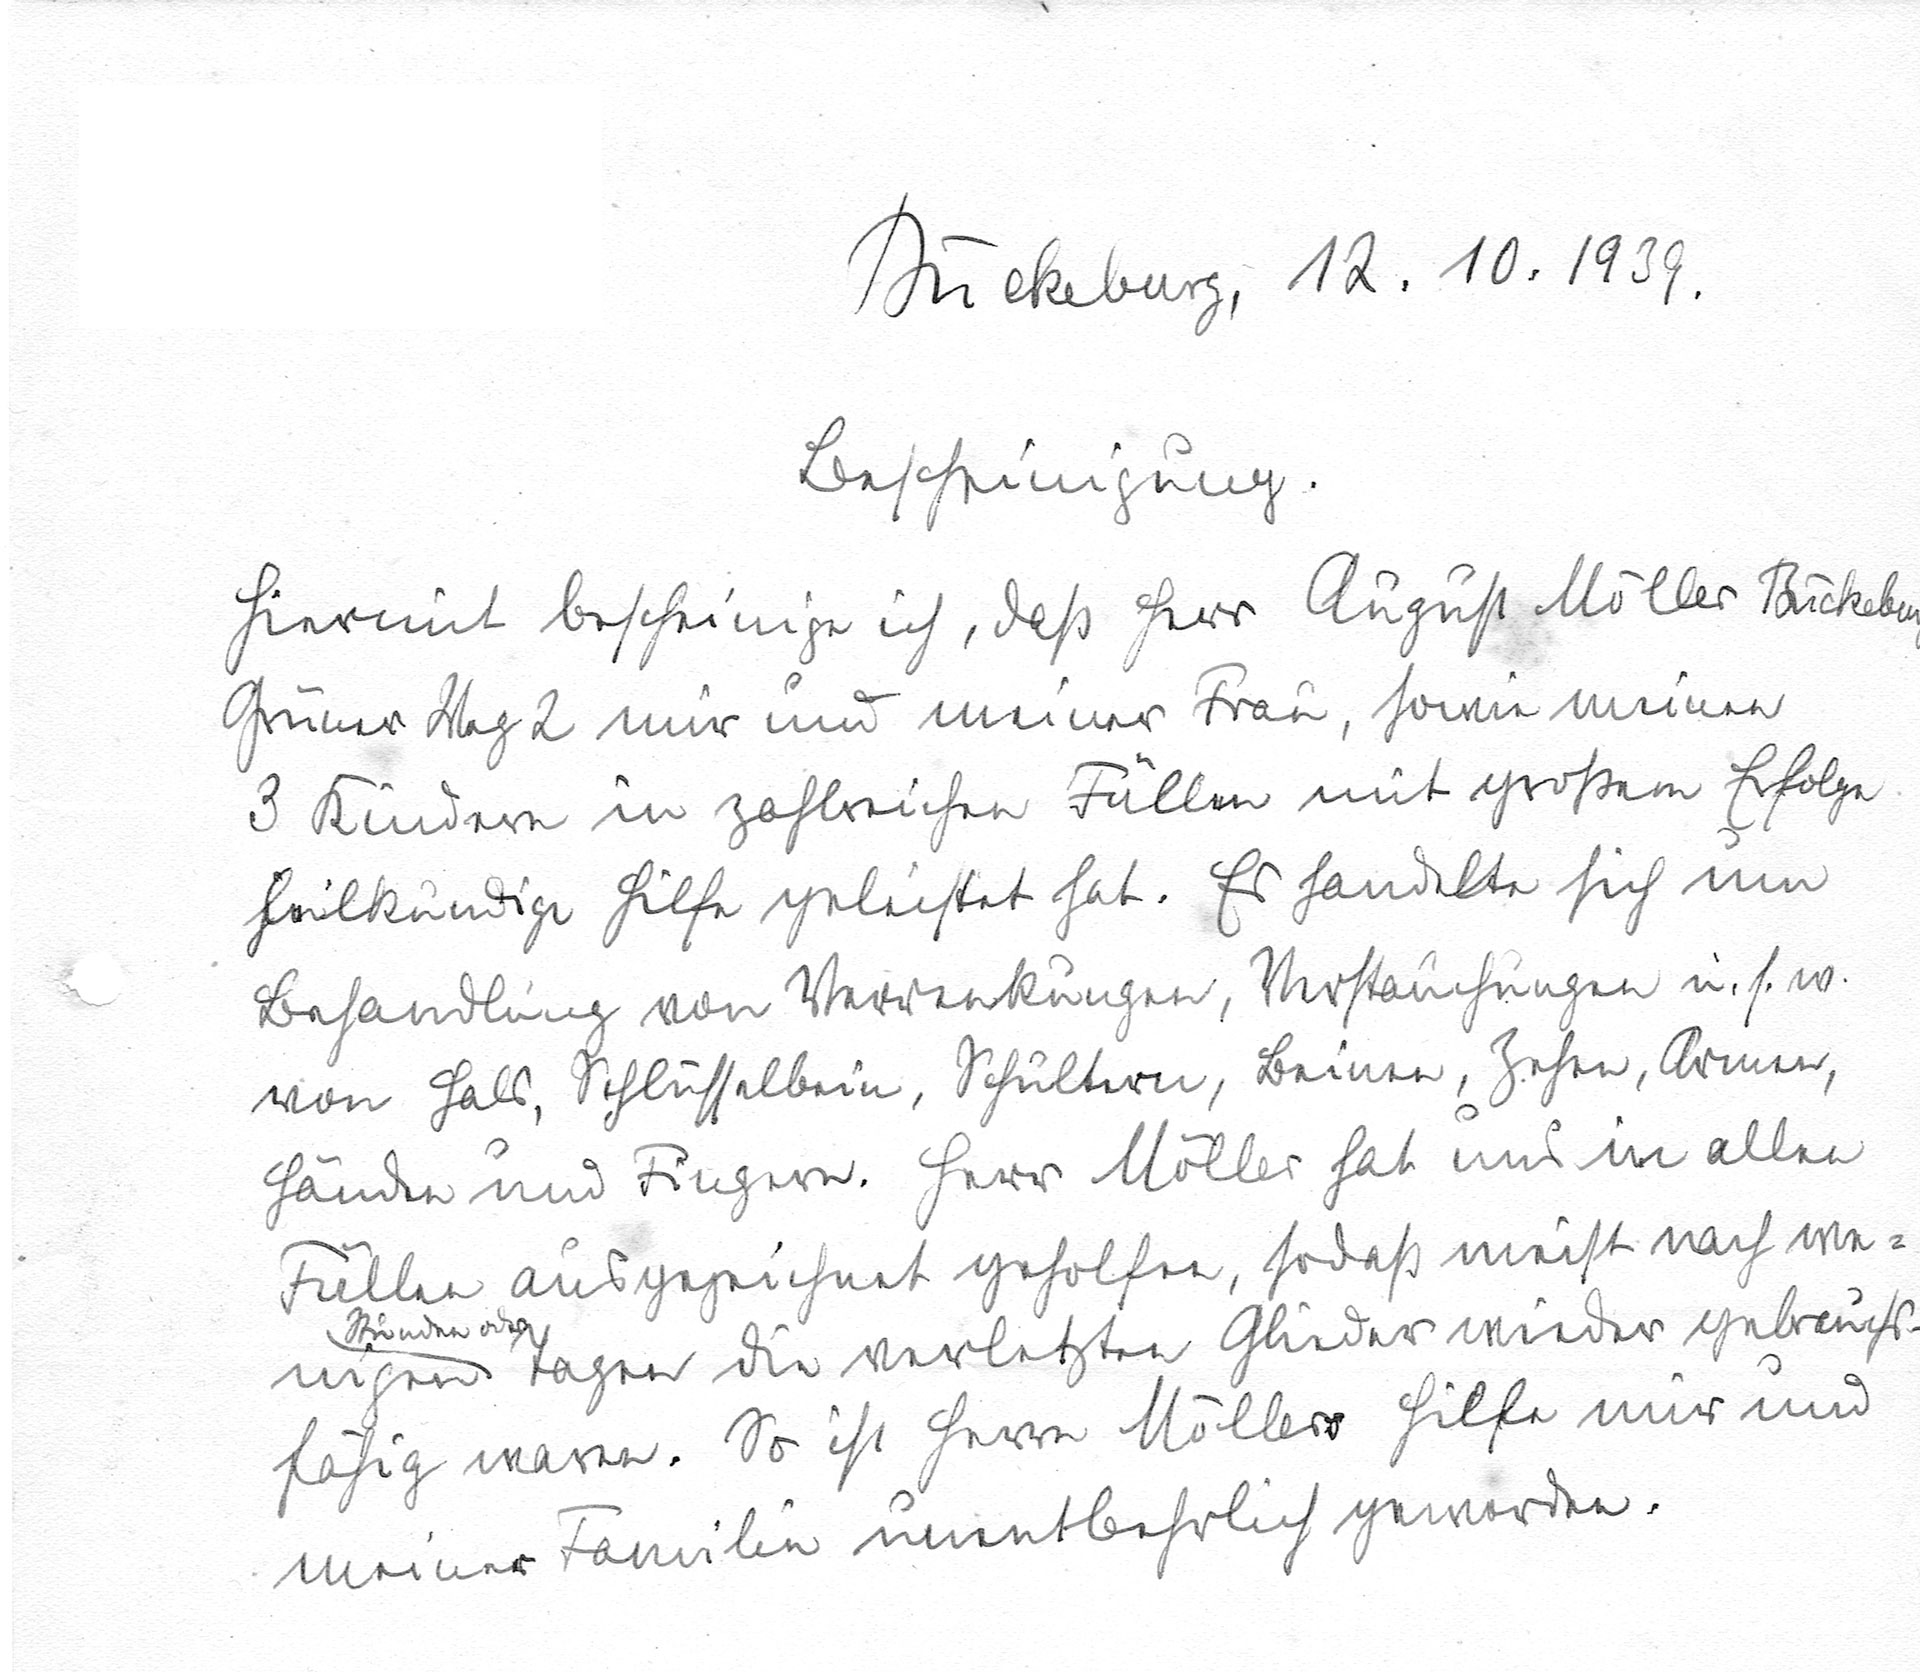 Bückeburg, 12. 10. 1939.
Bescheinigung.
Hiermit bescheinige ich, daß Herr August Möller Bückeburg
Grüner Weg 2 mir und meiner Frau, sowie meinen
3 Kindern in zahlreichen Fällen mit großem Erfolge
heilkundige Hilfe geleistet hat. Es handelte sich um
Behandlung von Verrenkungen, Verstauchungen u. s. w.
von Hals, Schlüsselbein, Schultern, Beinen, Zehen, Armen,
Händen und Fingern. Herr Möller hat uns in allen
Fällen ausgezeichnet geholfen, sodaß meist nach we-
Stunden oder
nigen Tagen die verletzten Glieder wieder gebrauchs-
fähig waren. So ist Herrn Möllers Hilfe mir und
meiner Familie unentbehrlich geworden.